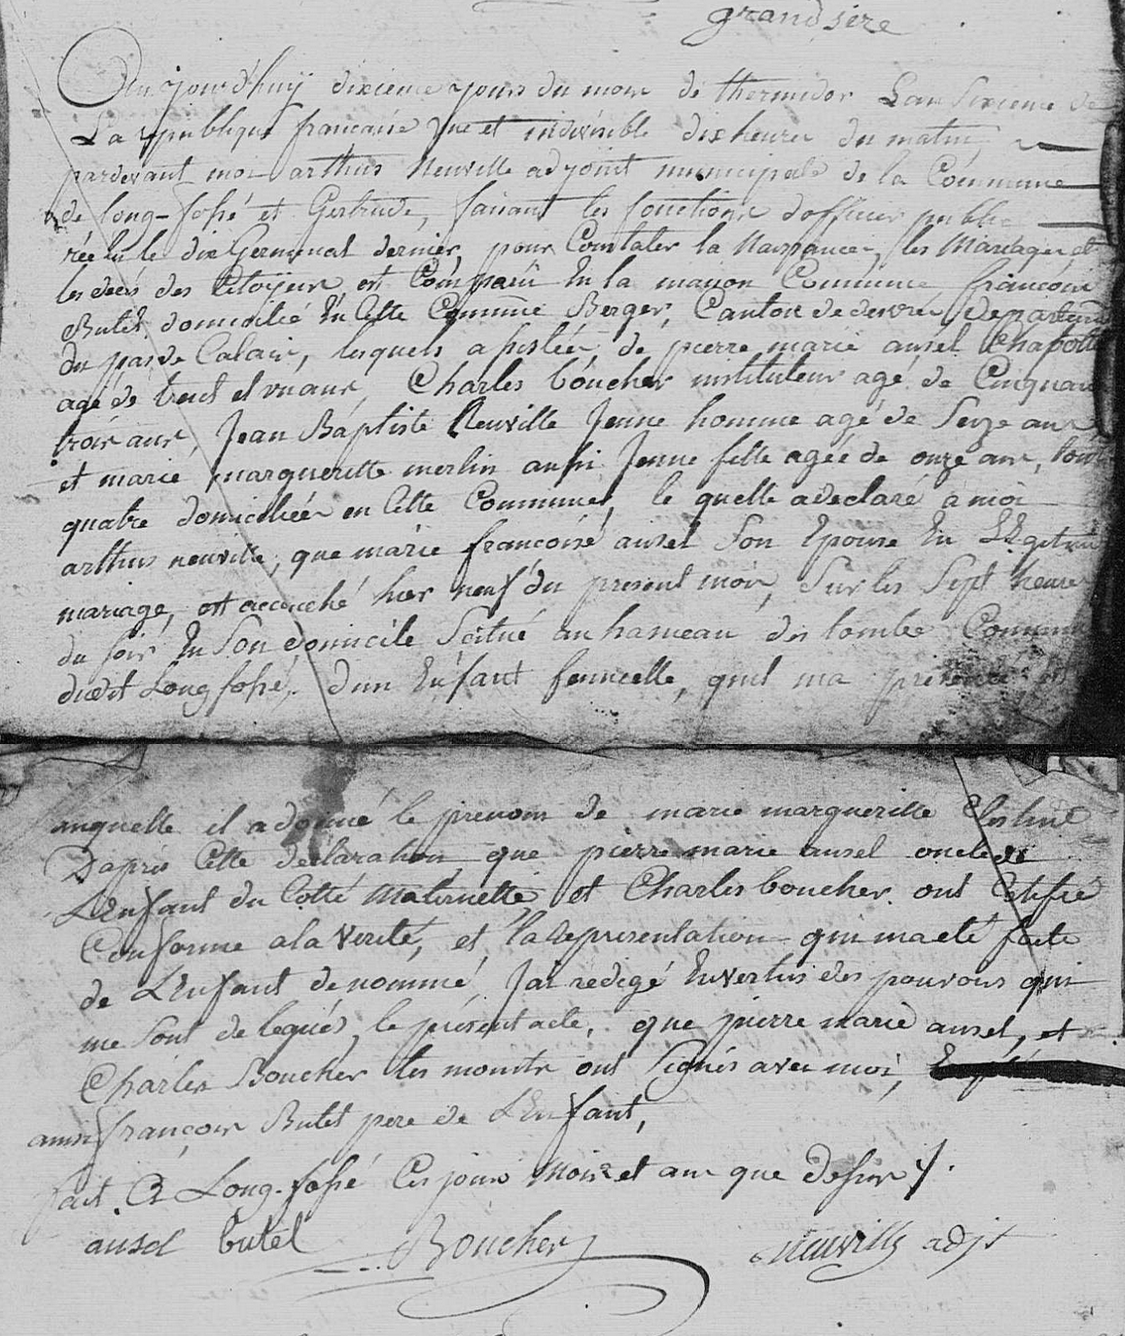 grandsire
Aujourd'huij dixieme jours du mois de thermidor Lan Sixieme de
La republique francaise une et indivisible dix heures du matin
pardevant moi arthus Neuville adjoint municipale de la Commune
de long-fossé et Gertrude, faisant les fonctions d'officier public
réelu le dix Germinal dernier, pour Constater la Naissance, les Mariages et
les decès des Citoyens est Comparu En la maison Commune francois
Butel, domicilié En Cette Commune Berger, Canton de desvres, departem
du pas de Calais, lesquels assistée, de pierre marie ansel
agé de trent et un ans, Charles boucher instituteur agé de Cinquan
trois ans, Jean Baptiste Neuville Jeune homme agé de Seize ans
et marie marguerite merlin aussi Jeune fille agée de onze ans, tout
quatre domiciliées en Cette Commune, le quelle a declaré à moi
arthus neuville, que marie francoise ansel Son Epouse En
mariage, est accouché hier neuf du present mois, Sur les Sept heures
du soir En Son domicile Scitué au hameau des tombe Commune
dudit Longfossé, d'un Enfant femelle, quil ma présenté et
auquelle il a donné le prenom de marie marguerite Celestine
D'après Cette declaration que pierre marie ansel oncle de
L'Enfant du Cotté Maternelle et Charles boucher ont Certifié
Conforme a la Verité, et la representation qui ma eté faite
de L'Enfant denommé, J'ai redigé En vertus des pouvoirs qui
me Sont delegués, le présent acte, que pierre marie ansel, et
Charles Boucher les ont Signés avec moi,
ainsi francois Butel pere de L'Enfant,
fait A Long-fossé Ces jours Mois et an que dessus
ansel butel Boucher Neuville adjt